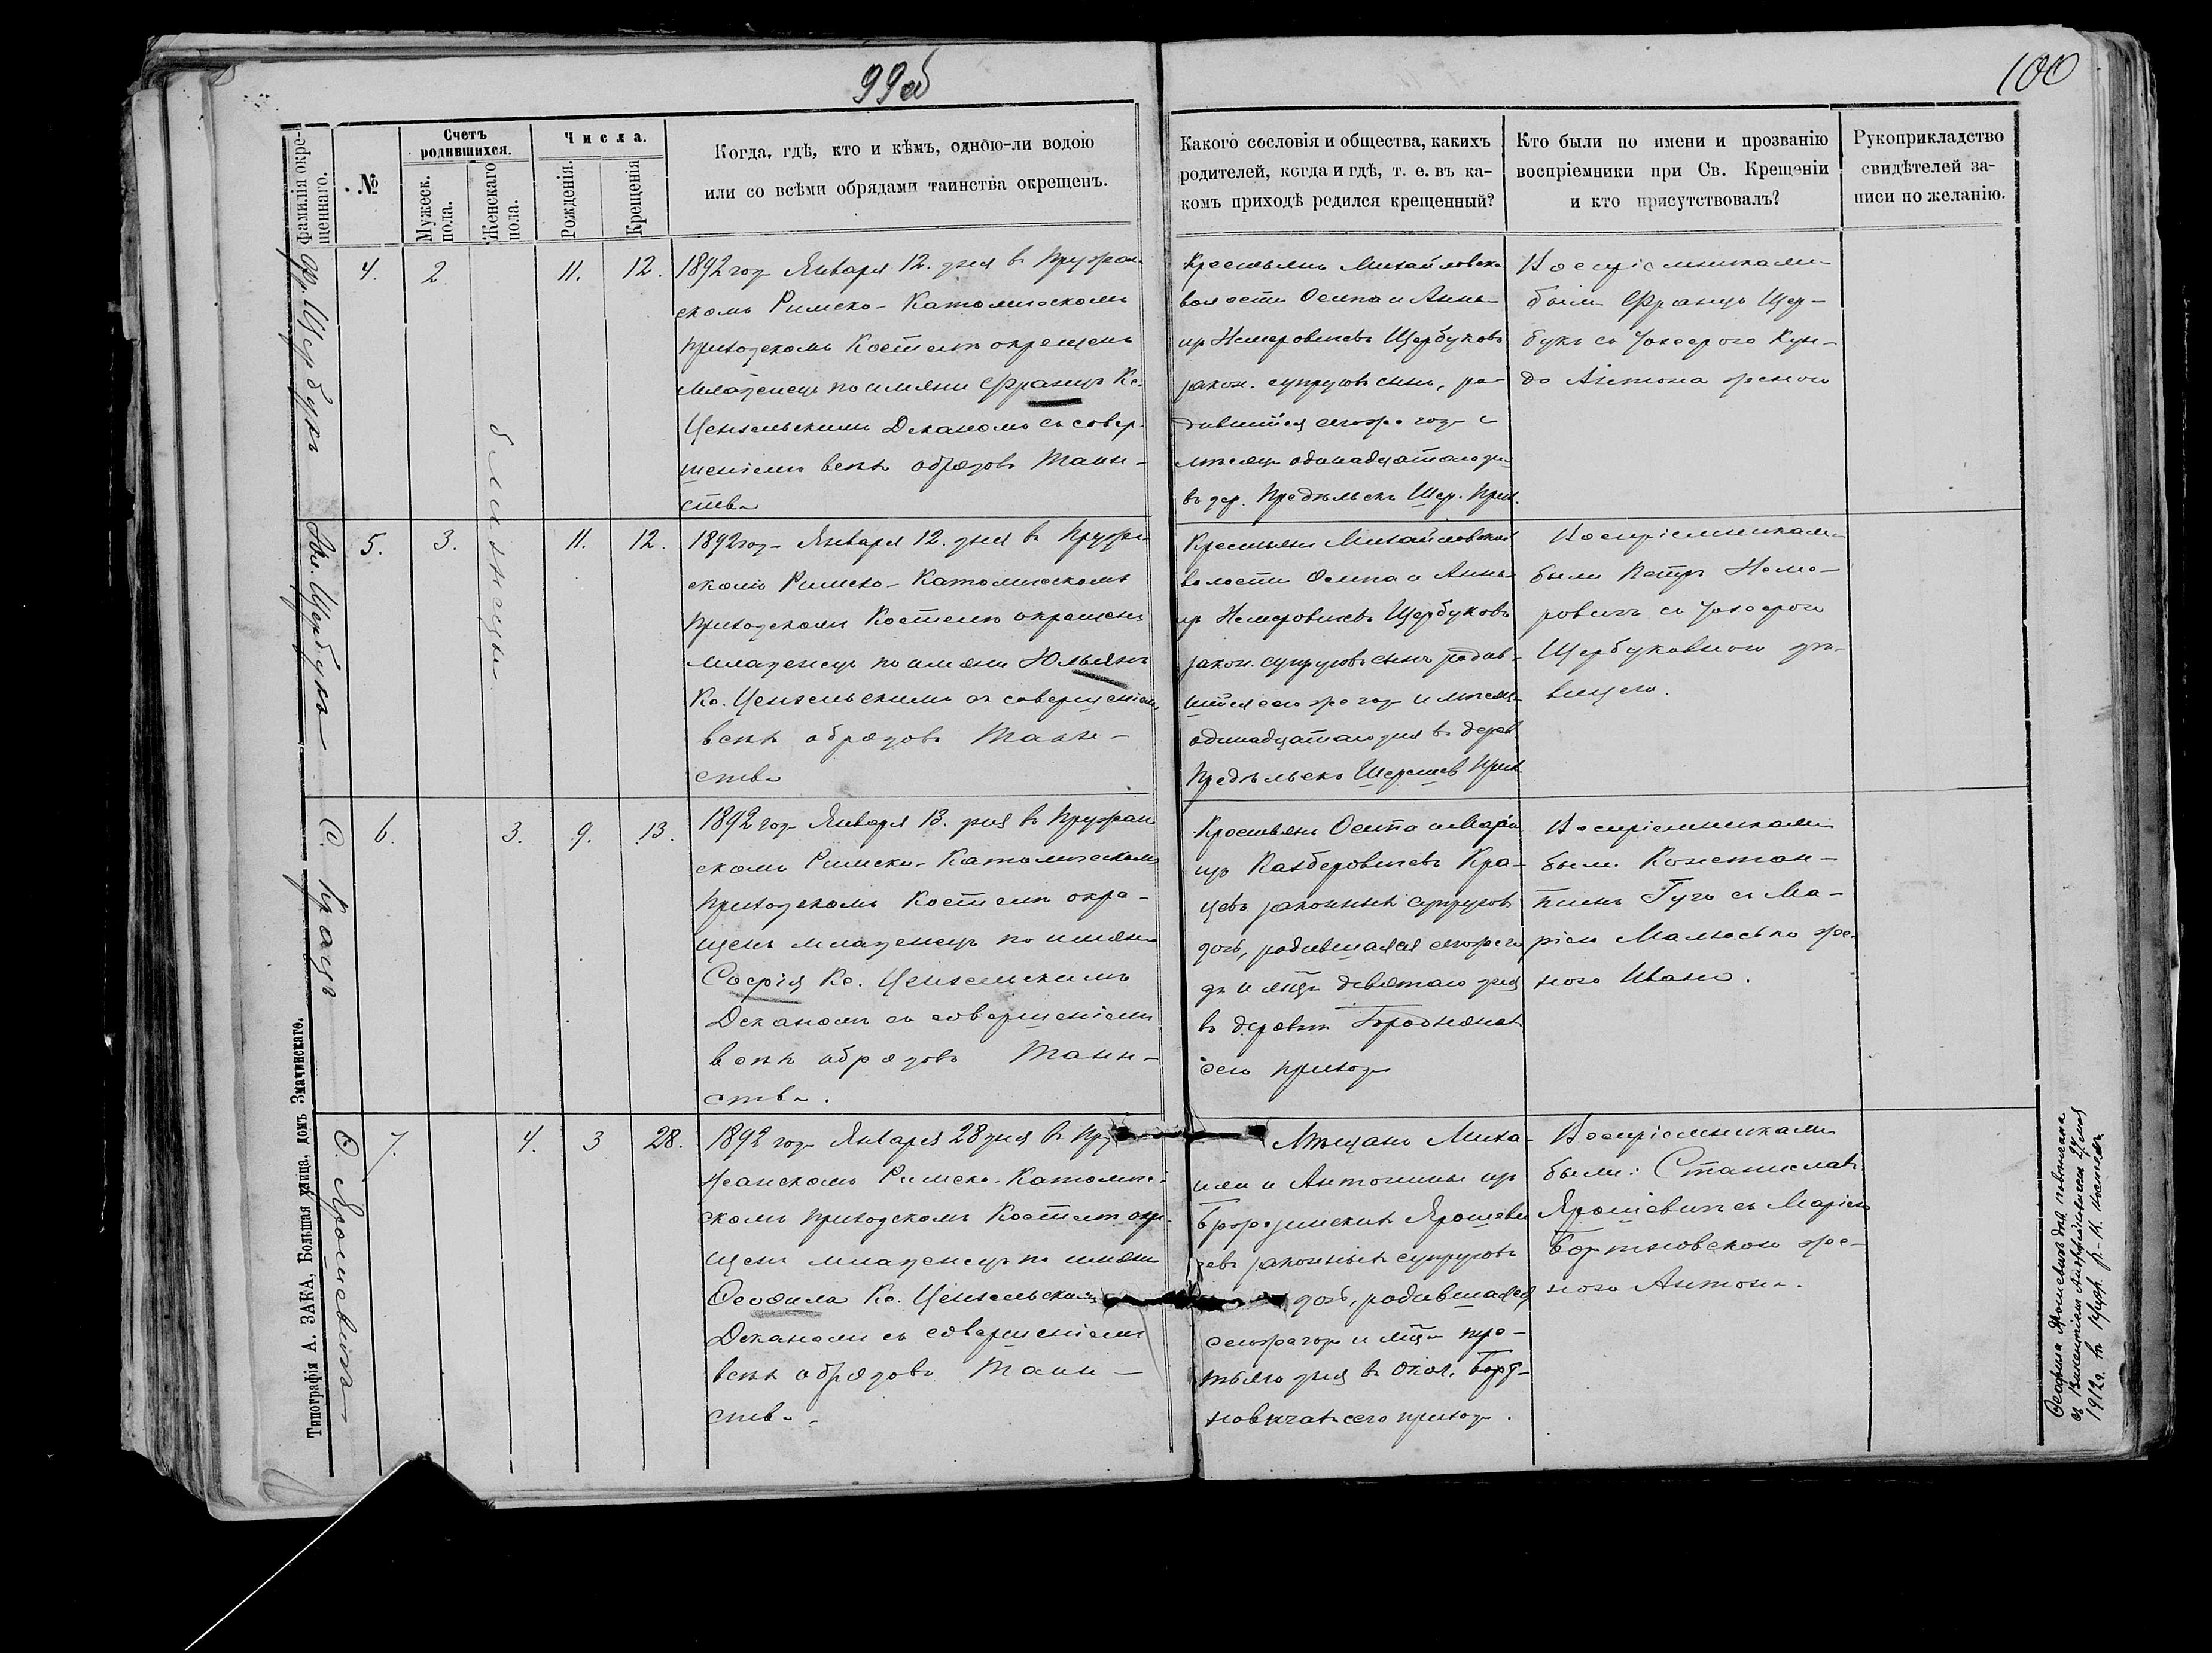 99об
100
фамилія окре-
щеннаго.
№
Счетъ
родившихся.
Мужеск.
пола.
Женскаго
пола.
Числа.
Рожденія.
Крещенія
Когда, гдѣ, кто и кѣмъ, одною-ли водою
или со всѣми обрядами таинства окрещенъ.
Какого сословія и общества, какихъ
родителей, когда и гдѣ, т. е. въ ка-
комъ приходѣ родился крещенный?
Кто были по имени и прозванію
воспріемники при Св. Крещеніи
и кто присутствовалъ?
Рукоприкладство
свидѣтелей за-
писи по желанію.
Фр. Щербукъ
4.
2
11.
12.
1892 года Января 12. дня въ Пружан-
скомъ Римско-Католическомъ
Приходскомъ Костелѣ окрещенъ
Младенецъ по имяни Францъ Кс.
Цензельскимъ Деканомъ съ совер-
шеніемъ всѣхъ обрядовъ Таин-
ства
Крестьянъ Михайловской
волости Осипа и Анны
изъ Немеровичевъ Щербуковъ
закон. супруговъ сынъ, ро-
дившійся сегоже года и
мѣсяца одинадцатаго дня
въ дер. Предѣльскъ Шер. Прих.
Воспріемниками
были Францъ Щер-
букъ съ Кун-
до Антона женою
близнецы
Юл. Щербукъ
5.
3.
11.
12.
1892 года Января 12. дня въ Пружан-
скомъ Римско-Католическомъ
Приходскомъ Костелѣ окрещенъ
младенецъ по имяни Юльянъ
Кс. Цензельскимъ съ совершеніемъ
всѣхъ обрядовъ Таин-
ства
Крестьянъ Михайловской
волости Осипа и Анны
изъ Немеровичевъ Щербуковъ
закон. супруговъ сынъ родив-
шійся сегоже года и мѣсяца
одинадцатаго дня въ дерев.
Предѣльскъ Шерешев Прих
Воспріемниками
были Петръ Неме-
ровичъ съ
Щербуковною дѣ-
вицею.
С. Крацъ
6.
3.
9.
13.
1892 года Января 13. дня въ Пружан
скомъ Римско-Католическомъ
Приходскомъ Костелѣ окре-
щенъ младенецъ по имяни
Софія Кс. Цензельскимъ
Деканомъ съ совершеніемъ
всѣхъ обрядовъ Таин-
ства.
Крестьянъ Осипа и Маріи
изъ Казберовичевъ Кра-
цевъ законныхъ супруговъ
дочь, родившаяся сегоже го
да и мѣца девятаго дня
въ деревнѣ
сего прихода
Воспріемниками
были: Констан-
тинъ Гуго съ Ма-
ріею Малюсько же-
ною Ивана.
Ѳ. Ярошевичъ
7.
4.
3
28.
1892 года Января 28 дня въ Пру
жанскомъ Римско-Католиче-
скомъ Приходскомъ Костелѣ окре-
щенъ младенецъ по имяни
Ѳеофила Кс. Цензельскимъ
Деканомъ съ совершеніемъ
всѣхъ обрядовъ Таин-
ства.
Мѣщанъ Миха-
ила и Антонины изъ
Ярошеви
чевъ законныхъ супруговъ
дочь, родившаяся
сегоже года и мѣца тре-
тьяго дня въ окол.
сего прихода.
Воспріемниками
были: Станиславъ
Ярошевичъ съ Маріею
Бортновскою же-
ною Антона.
Ѳеофила Ярошевичъ повѣнчана
съ Викентіемъ 24 мая
1912 г. въ р.-к. костелѣ
Типографія А. ЗАКА, Большая улица, домъ Значинскаго.